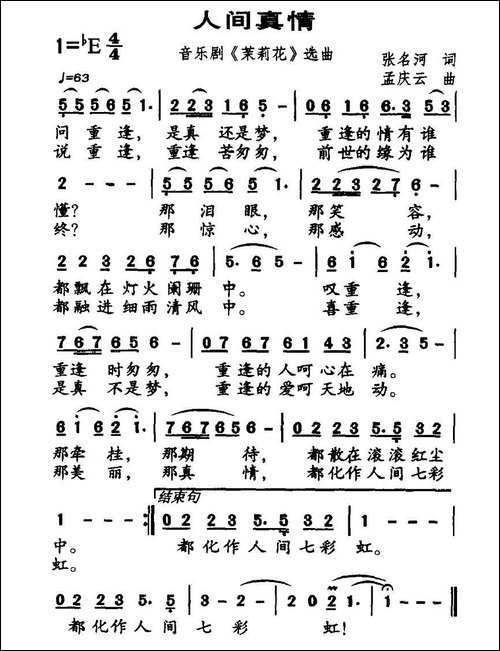 人间真情
1=♭E 4/4
音乐剧《茉莉花》选曲
张名河 词
♩=63
孟庆云 曲
5 5 5 6 5 1· | 2 2 3 1 6 5 - | 0 6 1 6 1 6· 3 5 3 |
问重逢，是真还是梦，重逢的情有谁
说重逢，重逢苦匆匆，前世的缘为谁
2 - - - | 5 5 5 6 5 1· | 2 2 3 2 7 6 - |
懂？那泪眼，那笑容，
终？那惊心，那感动，
2 2 3 2 6 7 6 | 5· 6 5 - | 6 1 6 2 1· |
都飘在灯火阑珊中。叹重逢，
都融进细雨清风中。喜重逢，
7 6 7 6 5 6 - | 0 7 6 7 6 1 3 4 3 | 2· 3 5 - |
重逢时匆匆，重逢的人呵心在痛。
是真不是梦，重逢的爱呵天地动。
6 1 6 2 1· | 7 6 7 6 5 6 - | 0 2 2 3 2 5· 5 3 2 |
那牵挂，那期待，都散在滚滚红尘
那美丽，那真情，都化作人间七彩
结束句
1 - - - :‖ 0 2 2 2 3 5· 5 3 2 | 1 - - - |
中。都化作人间七彩虹。
虹。
0 2 2 2 3· 5 | 3 - 2 - | 2 0 2 1· | 1 - - ‖
都化作人间七彩虹！